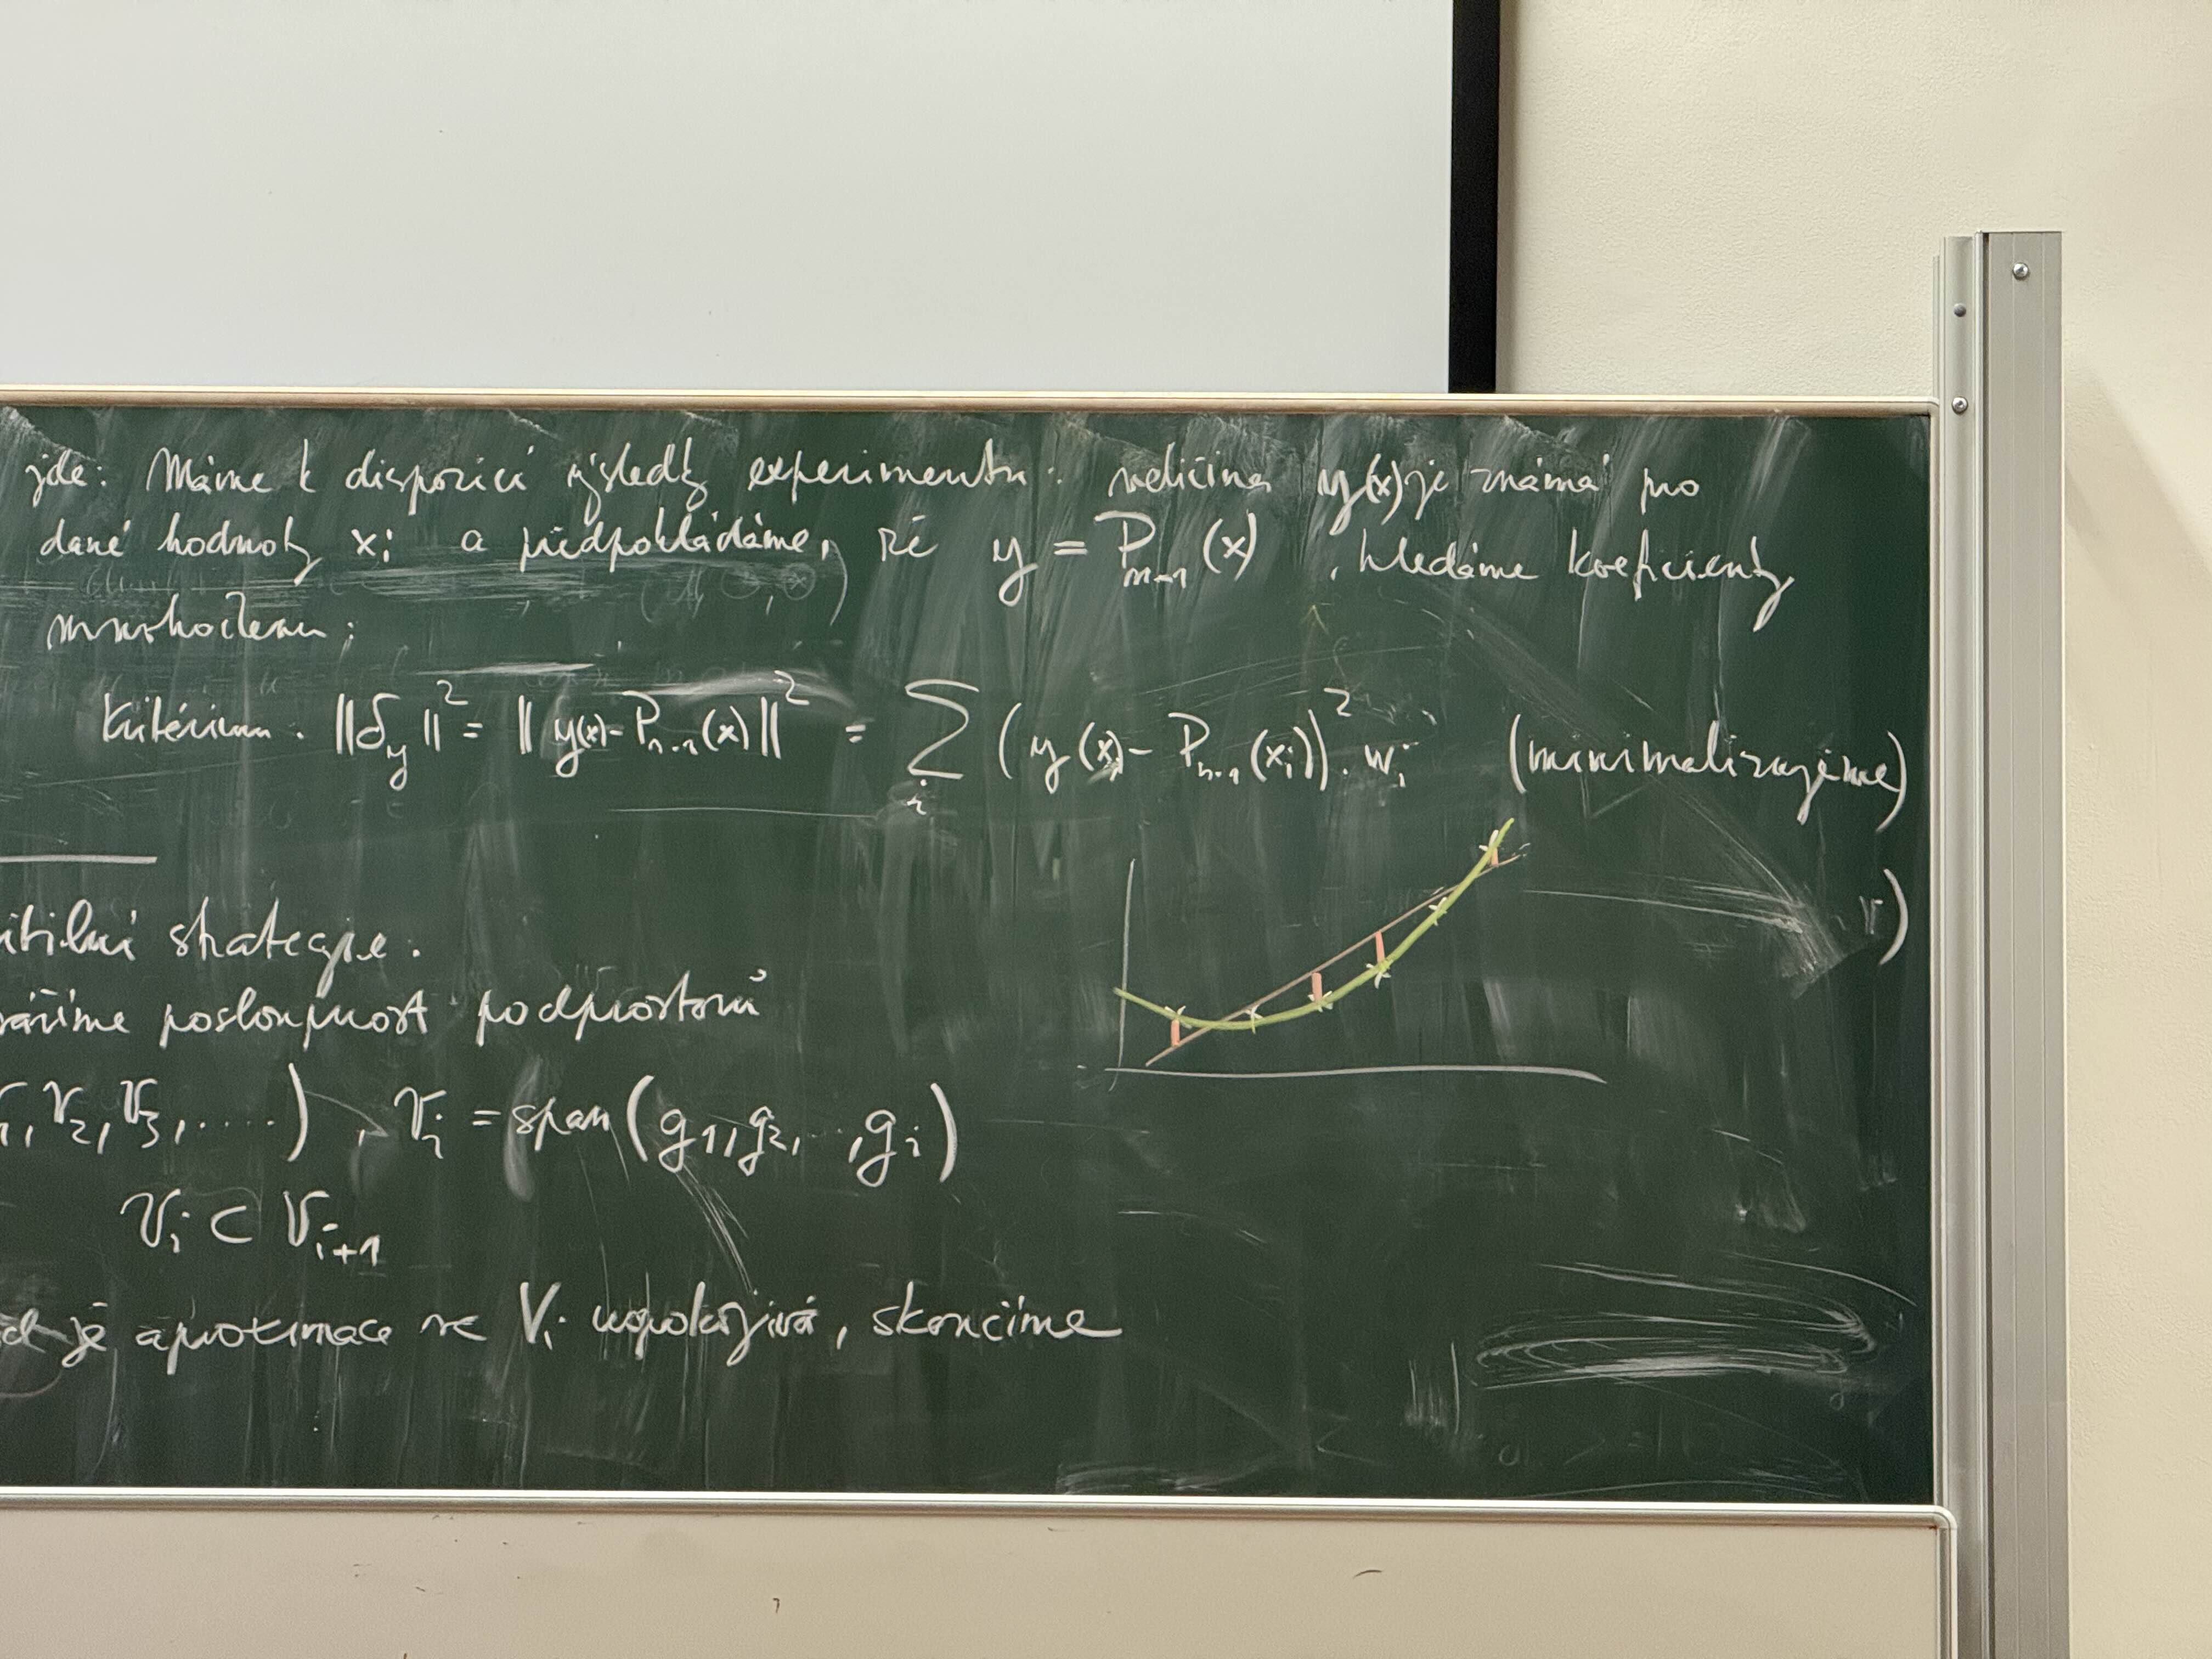 jde: Máme k dispozici výsledky experimentu: veličina y(x) je známá pro
dané hodnoty xᵢ a předpokládáme, že y = Pₙ₋₁(x), hledáme koeficienty
mnohočlenu:
Kritérium: ||δ_y||² = ||y(x) - Pₙ₋₁(x)||² = Σᵢ (y(xᵢ) - Pₙ₋₁(xᵢ))². wᵢ (minimalizujeme)
strategie.
posloupnost podprostorů
V₂, V₃, ....) , Vᵢ = span(g₁, g₂, ..., gᵢ)
Vᵢ ⊂ Vᵢ₊₁
je aproximace ve Vᵢ uspokojivá, skončíme